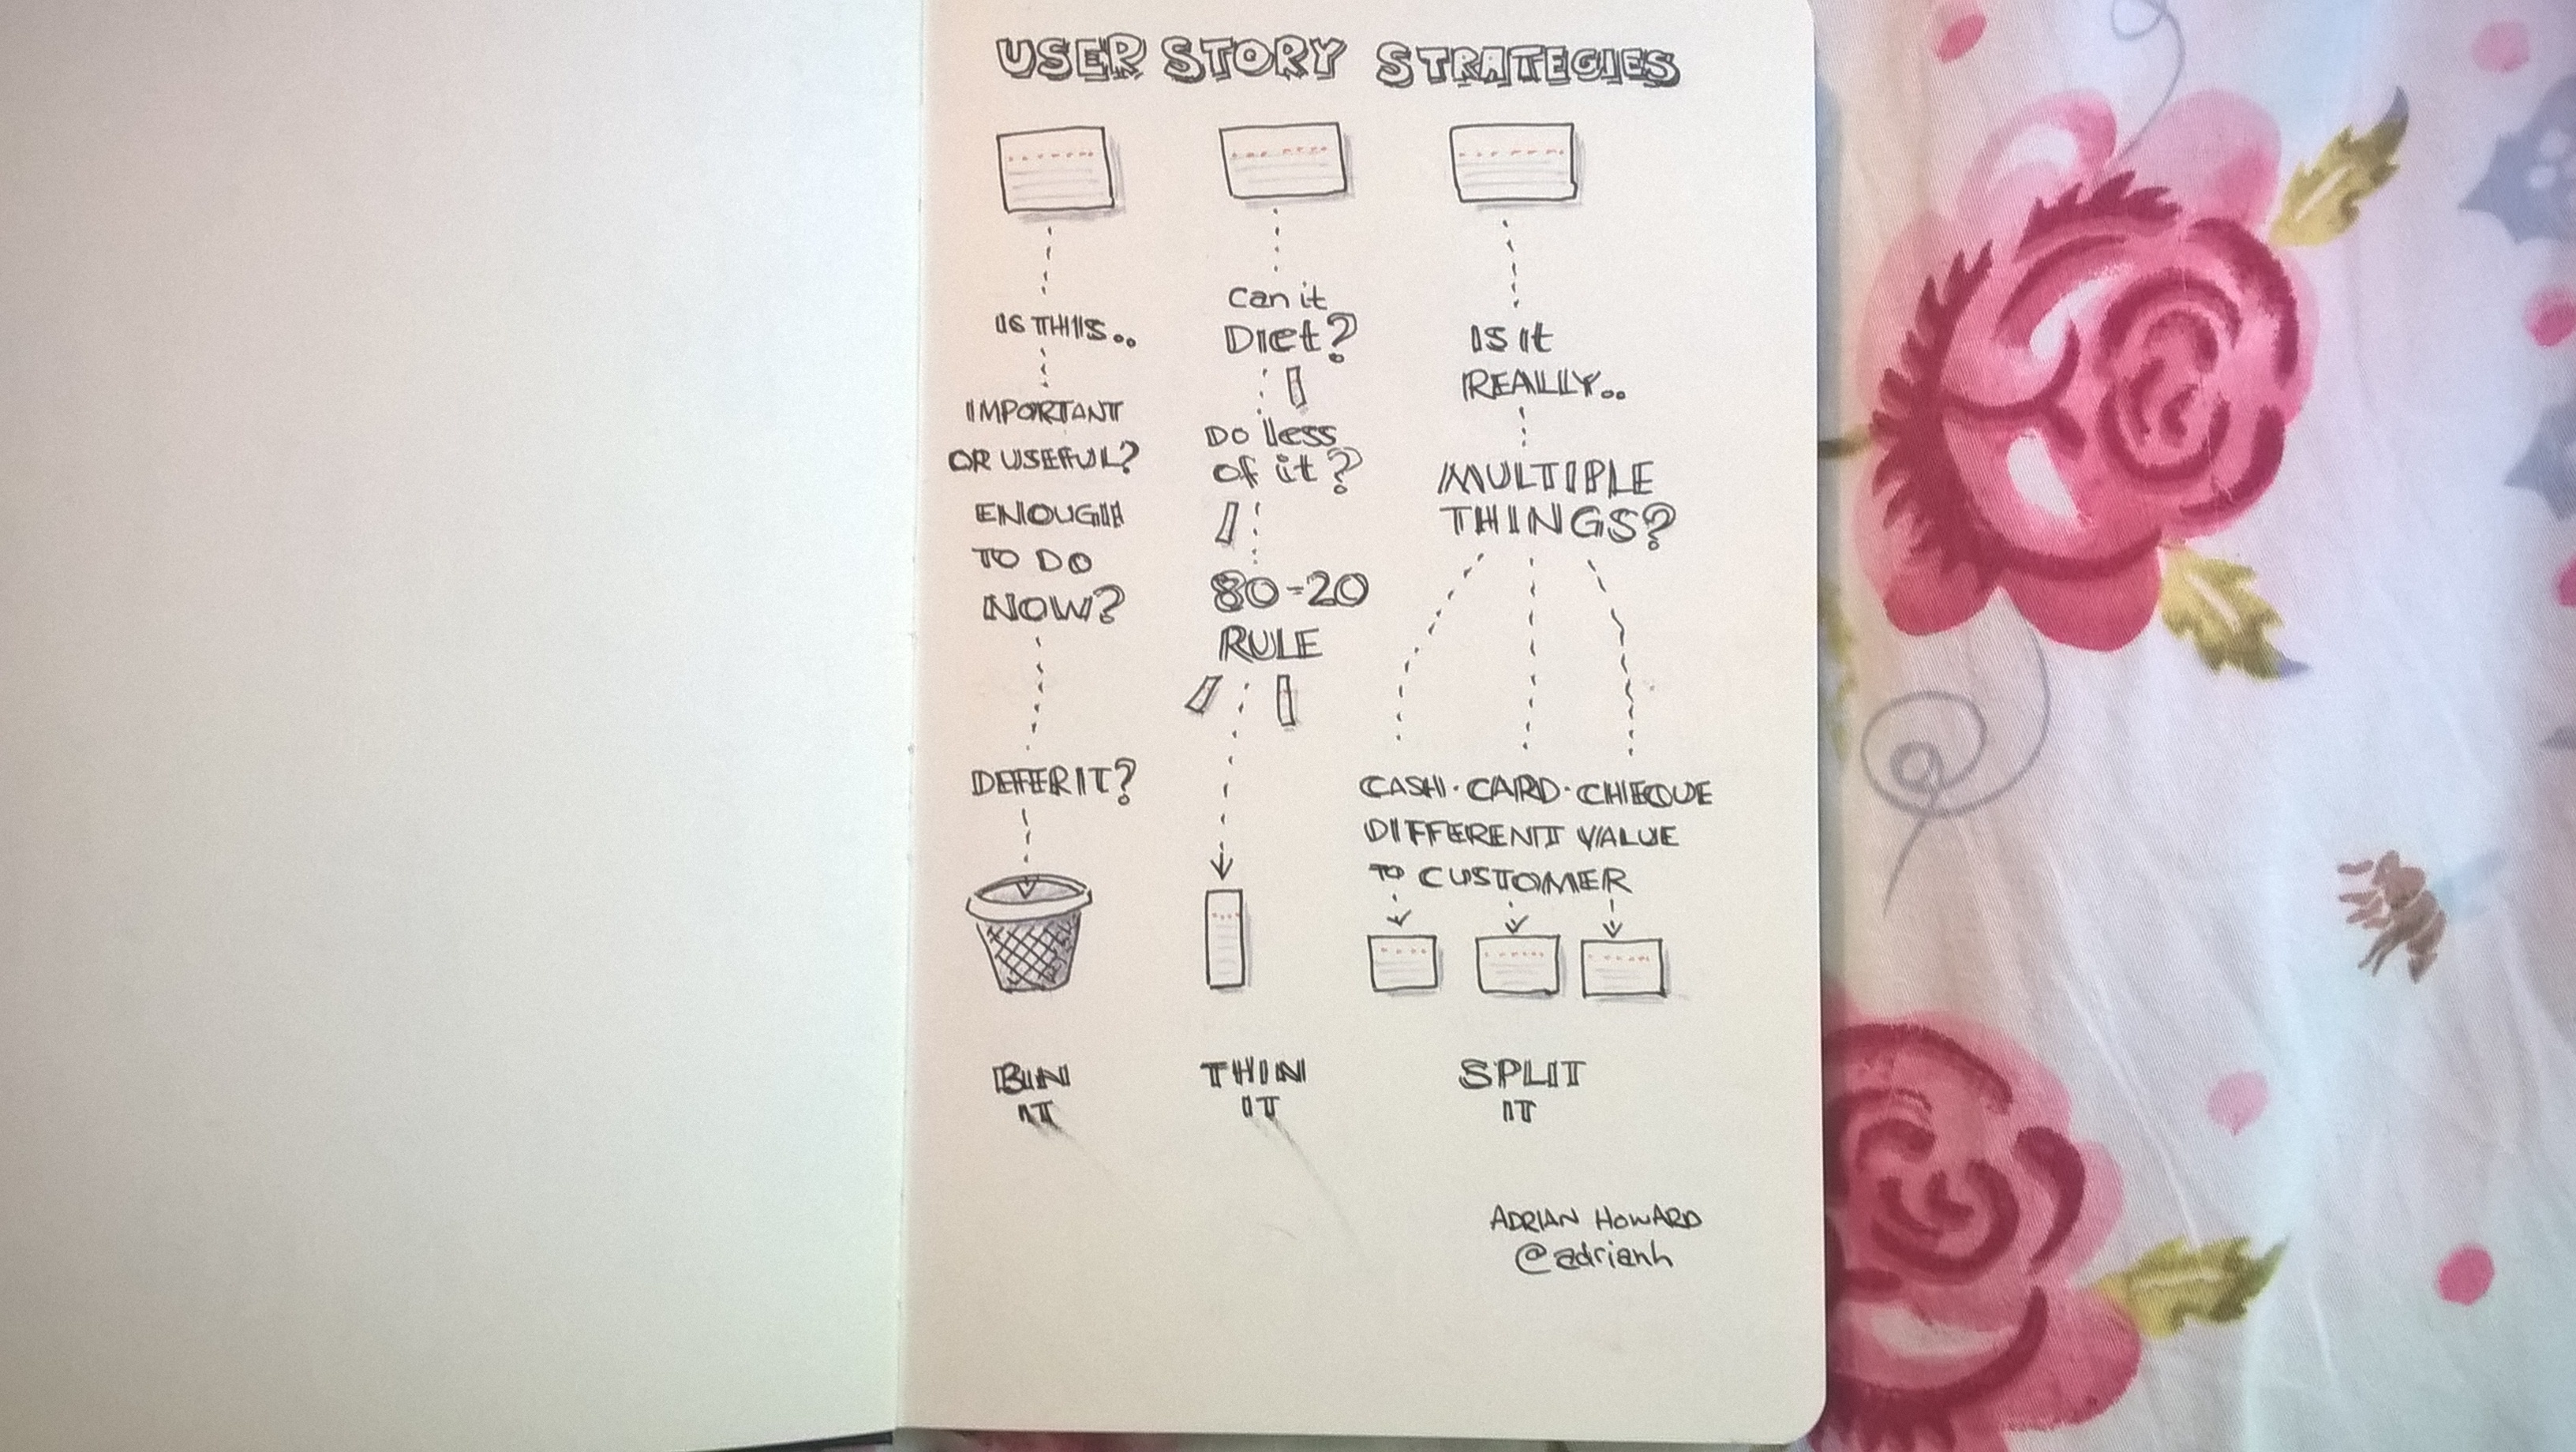 USER STORY STRATEGIES
IS THIS..
IMPORTANT
OR USEFUL?
ENOUGH
TO DO
NOW?
DEFER IT?
BIN
IT
Can it
Diet?
Do less
of it?
80-20
RULE
THIN
IT
IS it
REALLY..
MULTIPLE
THINGS?
CASH · CARD · CHEQUE
DIFFERENT VALUE
TO CUSTOMER
SPLIT
IT
ADRIAN HOWARD
@adrianh